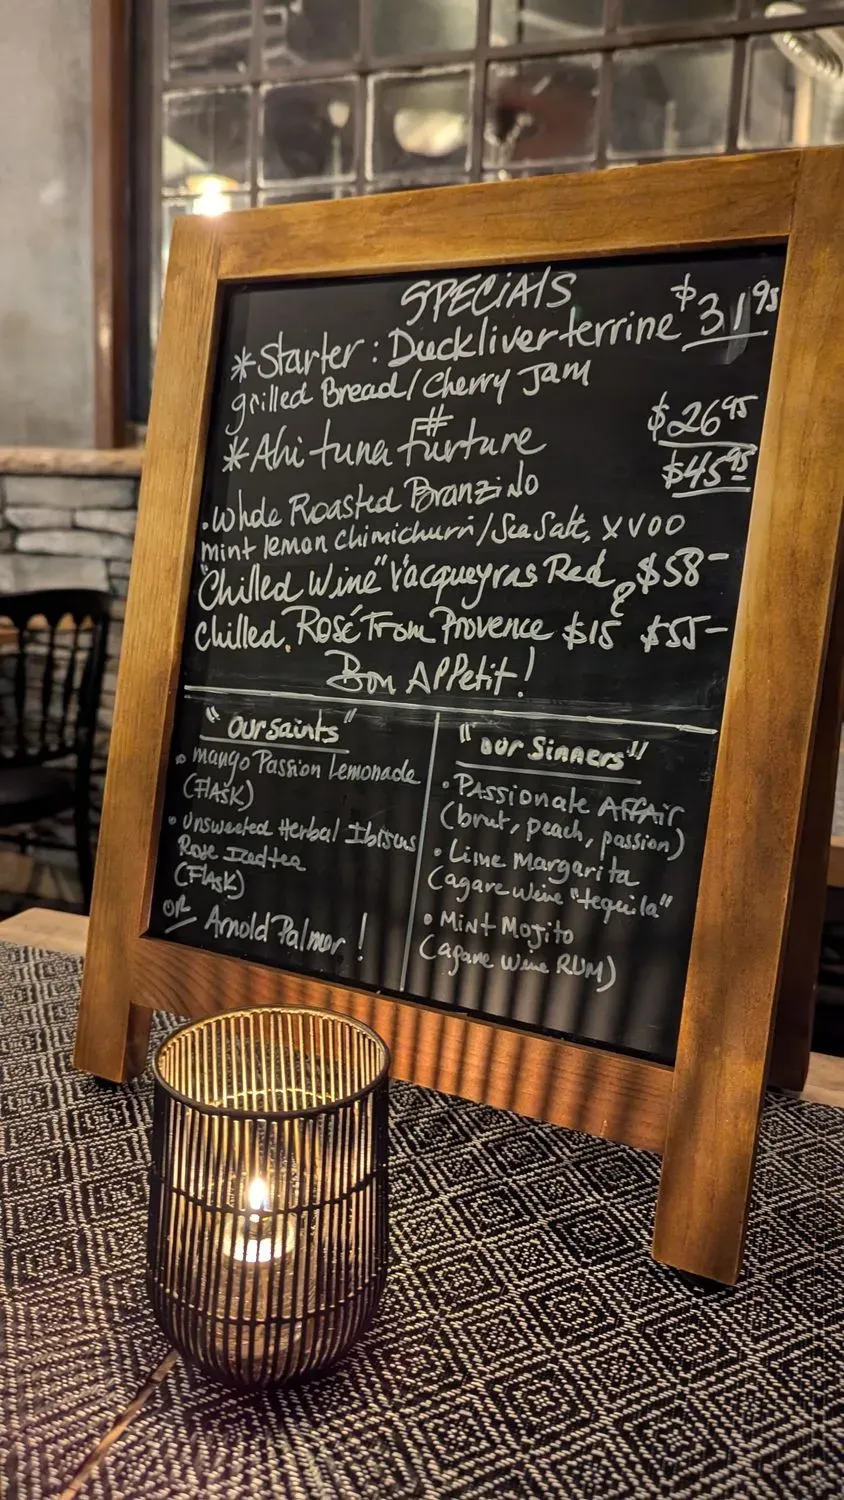 SPECiAlS
* Starter : Duckliver terrine $31 95
grilled Bread / Cherry Jam
* Ahi tuna # Furture $26 95
$45 95
. Whole Roasted Branzino
mint lemon chimichurri / Sea Salt, XVOO
"Chilled Wine" Vacqueyras Red $58 -
Chilled Rosé From Provence $15 $55 -
Bon APPetit !
"Our Saints"
• mango Passion Lemonade
(FlAsk)
• Unsweeted Herbal Ibiscus
Rose Iced tea
(Flask)
OR Arnold Palmer !
"Our Sinners"
• PAssionate AffAir
(brut, peach, passion)
• Lime Margarita
(agave wine "tequila"
• Mint Mojito
(agave Wine RUM)